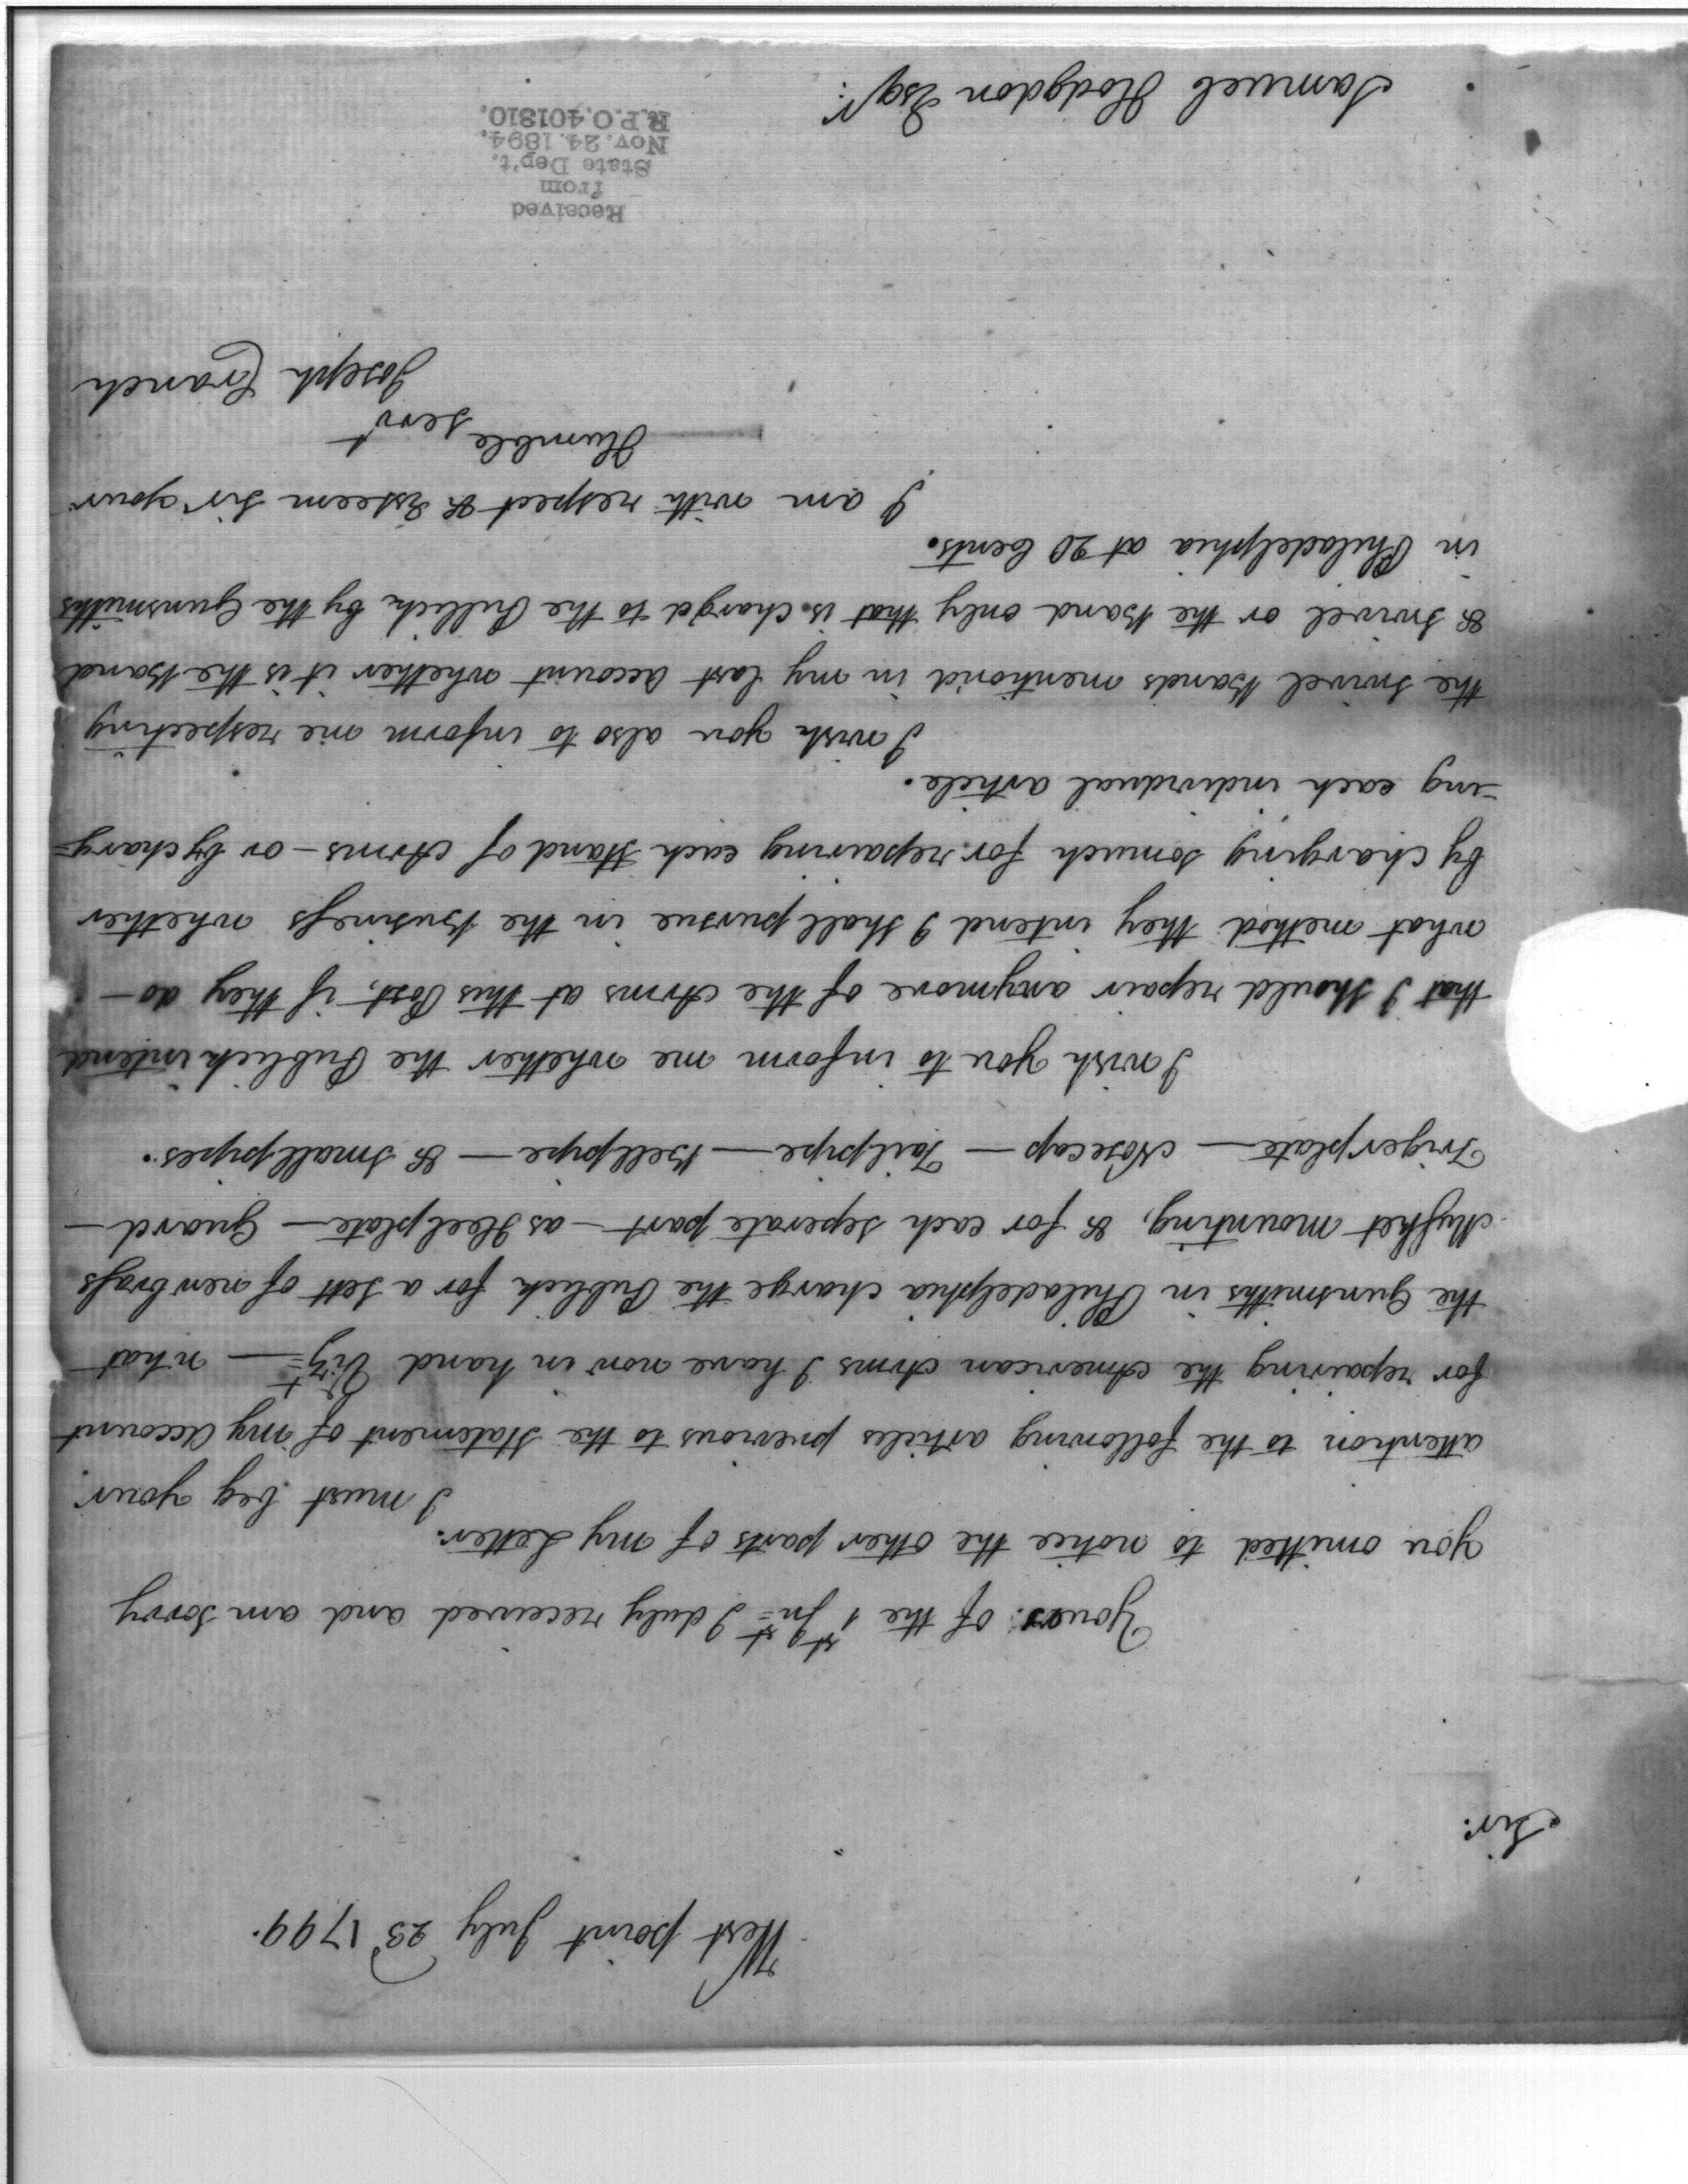 West point July 23 1799.
Sir:
Yours: of the 1st Inst I duly received and am sorry
you omitted to notice the other parts of my Letter.
I must beg your
attention to the following articles previous to the Statement of my account
for repairing the American Arms I have now in hand Vizt — what
the Gunsmiths in Philadelphia charge the Publick for a Sett of new brass
Musket mounting, & for each seperate part — as Heelplate — Guard —
Trigerplate — Nosecap — Tailpipe — Bellpipe — & Smallpipes.
I wish you to inform me whether the Publick intend
that I should repair anymore of the Arms at this Post, if they do —
what method they intend I shall pursue in the Business whether
by charging somuch for repairing each Stand of Arms — or by charg=
=ing each individual article.
I wish you also to inform me respecting
the Swivel Bands mentiond in my last account whether it is the Band
& Swivel or the Band only that is charg'd to the Publick by the Gunsmiths
in Philadelphia at 20 Cents.
I am with respect & Esteem Sir your
Humble servt
Joseph Cranch
Received
from
State Dep't.
Nov. 24. 1894.
R.P.O. 401810.
Samuel Hodgdon Esqr: